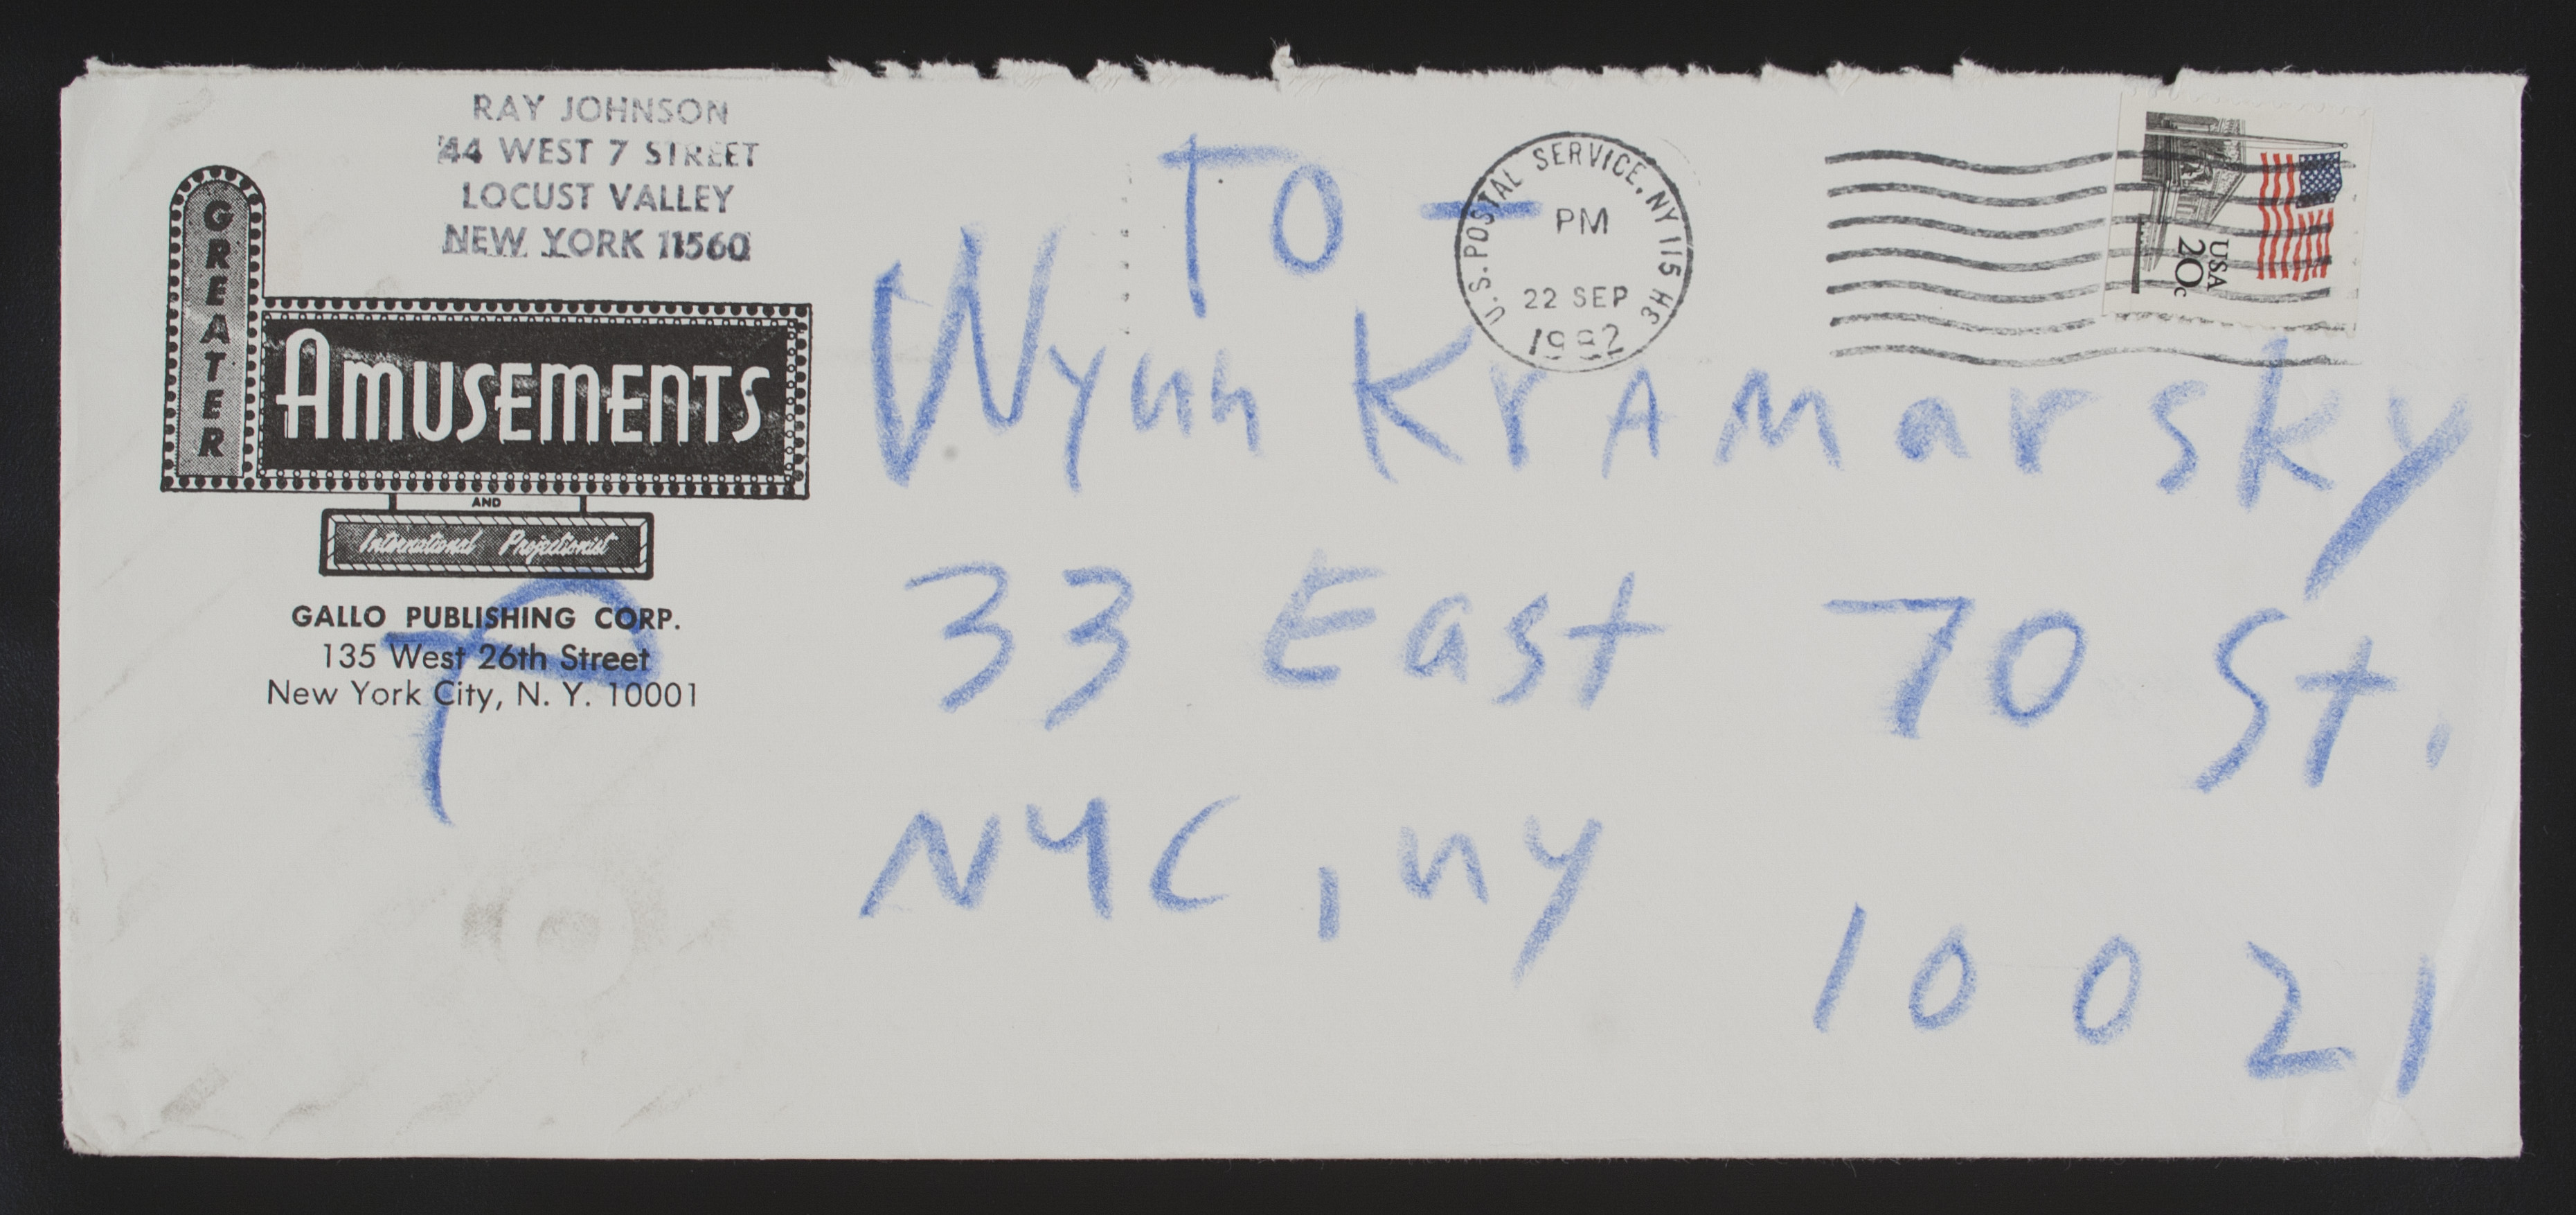 RAY JOHNSON
44 WEST 7 STREET
LOCUST VALLEY
NEW YORK 11560
GREATER
AMUSEMENTS
AND
International Projectionist
GALLO PUBLISHING CORP.
135 West 26th Street
New York City, N. Y. 10001
TO -
Wynn KrAMarsky
33 East 70 St.
NYC, ny
10021
U.S. POSTAL SERVICE, NY 115
PM
22 SEP
1982
USA
20c